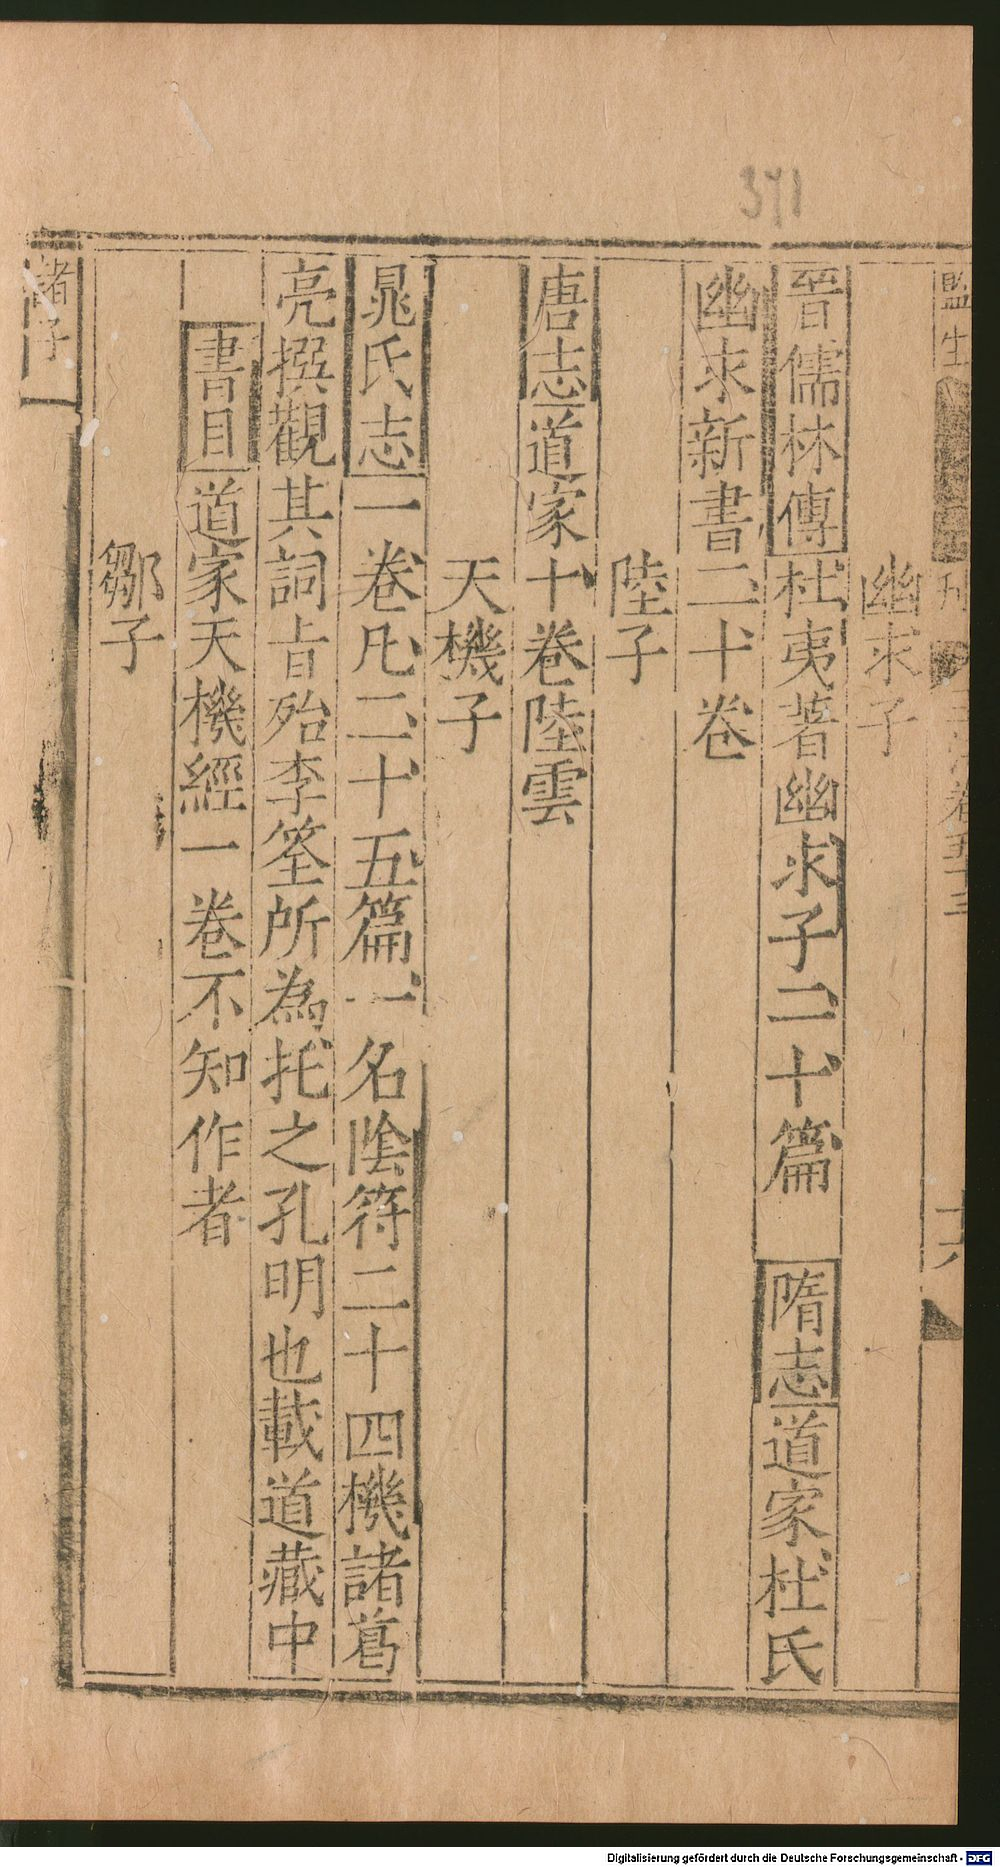 371
監生
刋
卷五十三
十六
幽求子
晉儒林傳杜夷著幽求子二十篇 隋志道家杜氏
幽求新書二十卷
陸子
唐志道家十卷陸雲
天機子
晁氏志一卷凡二十五篇一名隂符二十四機諸葛
亮撰觀其詞㫖殆李筌所為托之孔明也載道藏中
書目道家天機經一卷不知作者
鄒子
諸子一
Digitalisierung gefördert durch die Deutsche Forschungsgemeinschaft - DFG